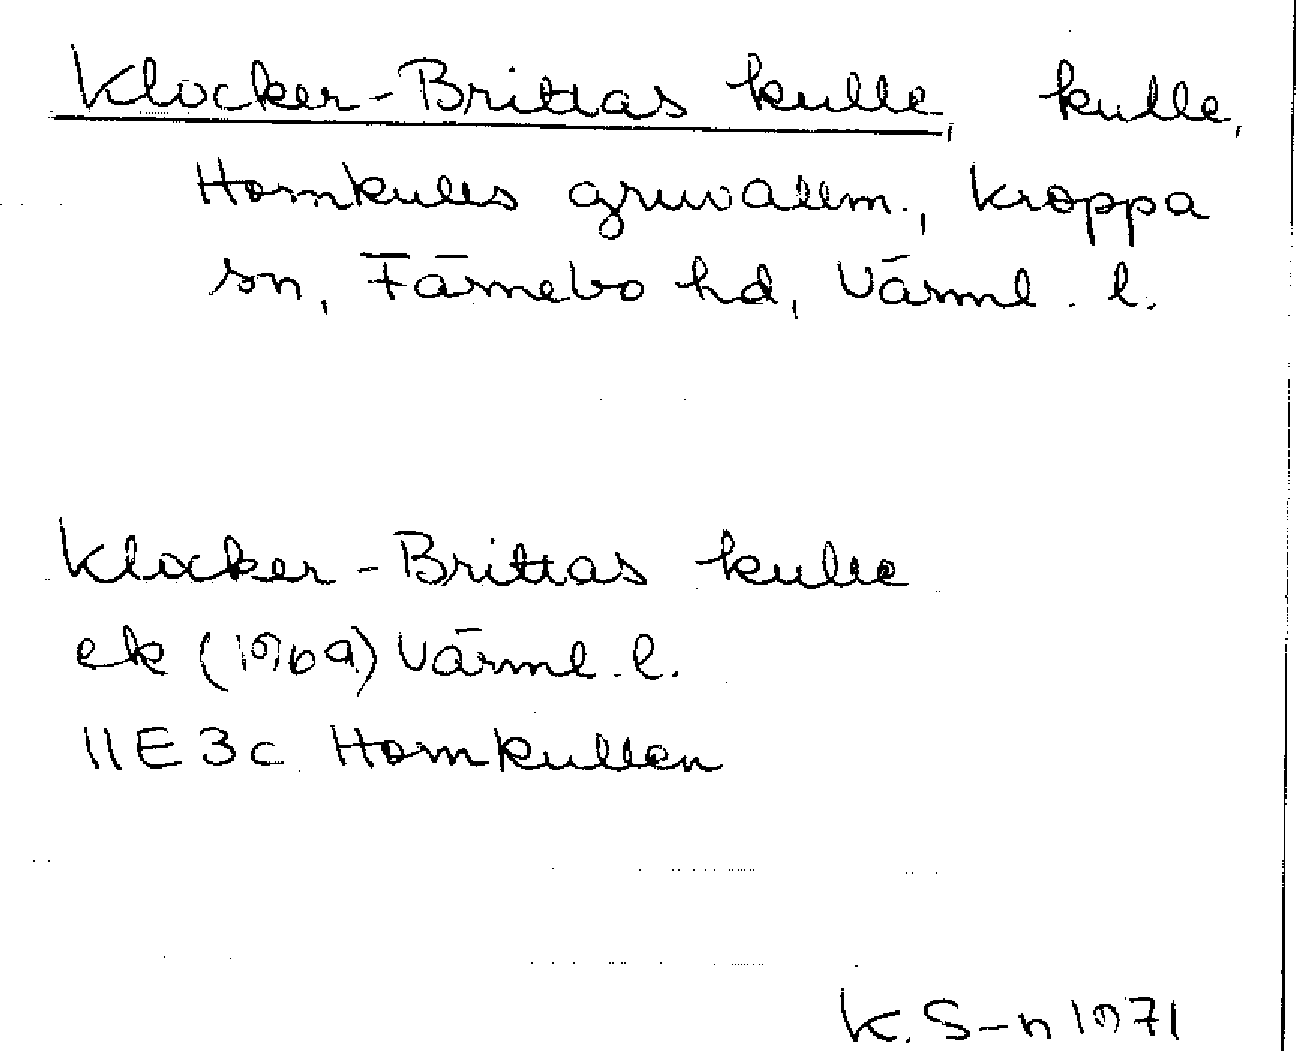 Klocker-Brittas kulle, kulle,
Hornkulls gruvallm., Kroppa
sn, Färnebo hd, Värml. l.
Klocker-Brittas kulle
ek (1969) Värml. l.
11E3c Hornkullen
K. S-n 1971